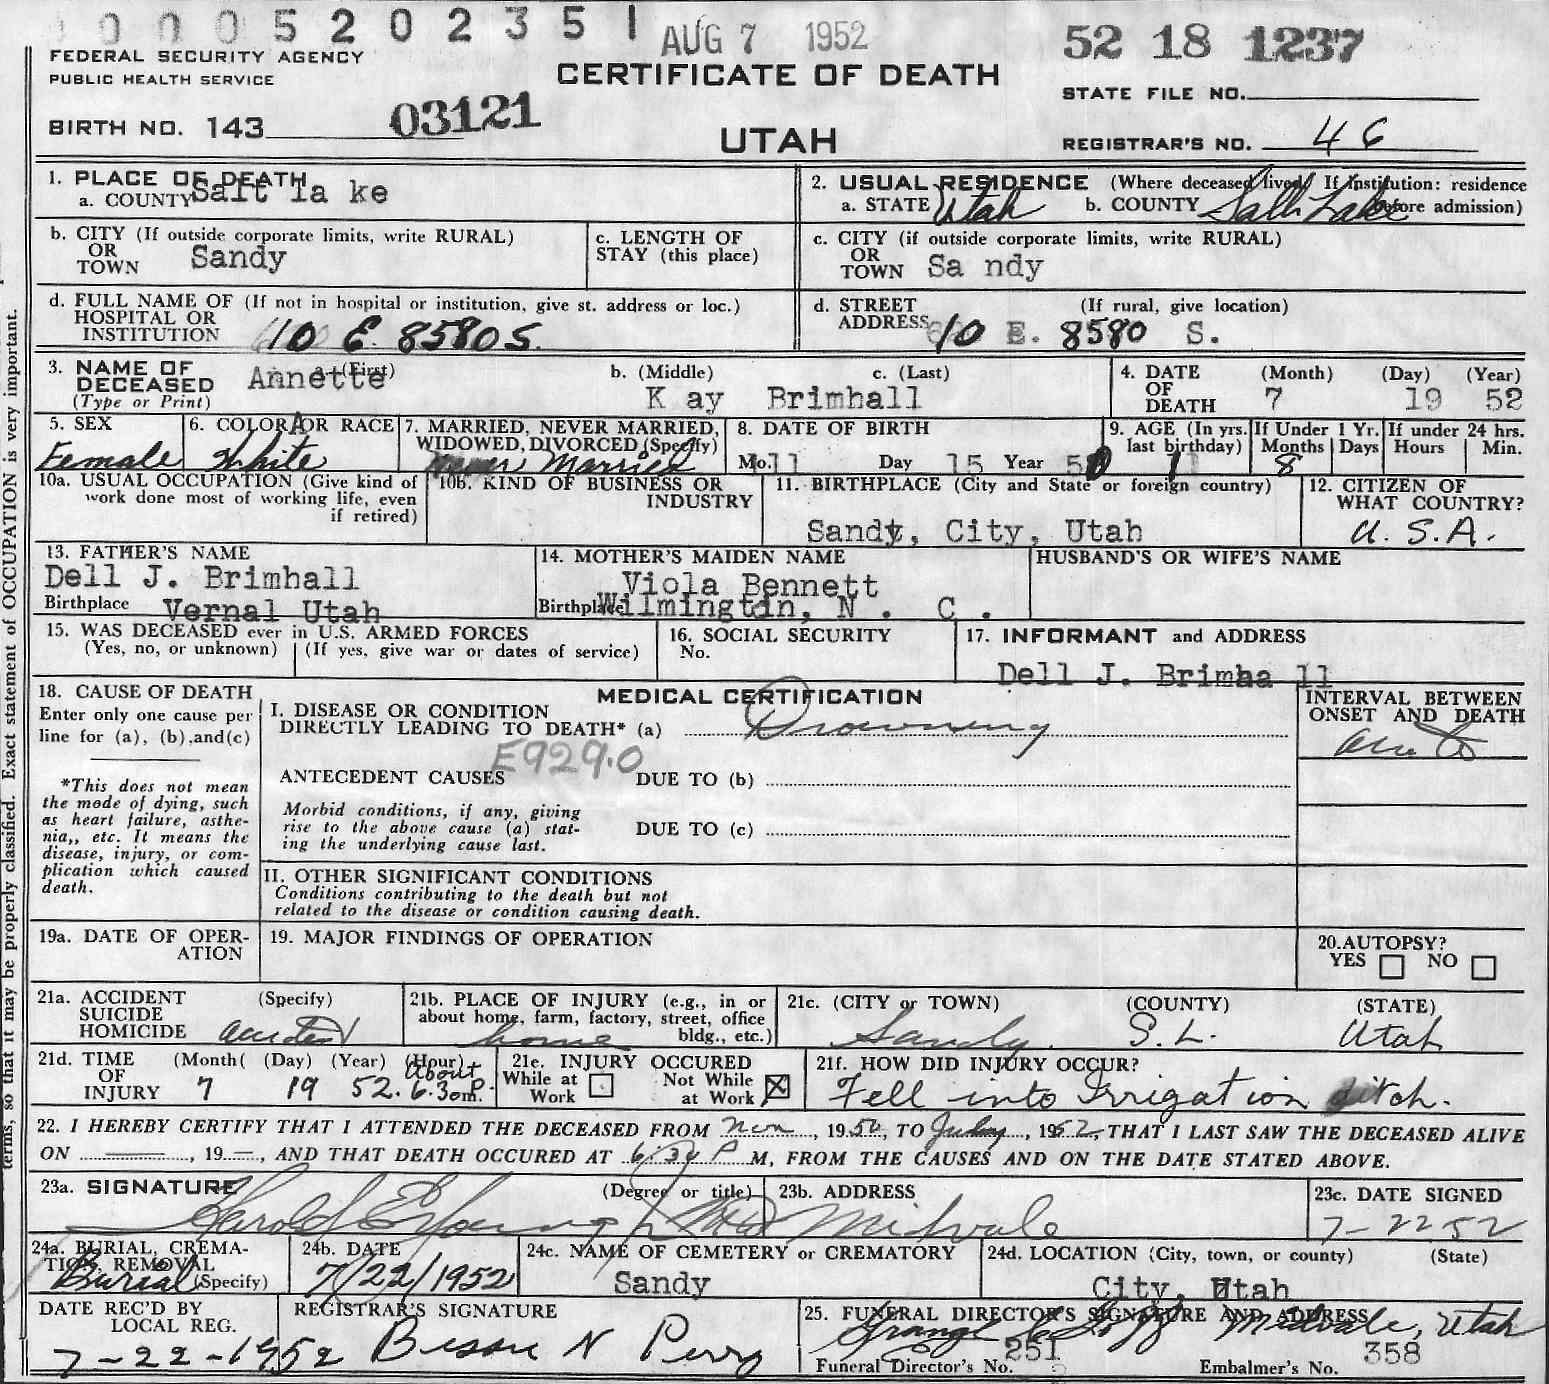 0 0 0 5 2 0 2 3 5 1 AUG 7 1952 52 18 1237
FEDERAL SECURITY AGENCY
PUBLIC HEALTH SERVICE
CERTIFICATE OF DEATH
STATE FILE NO.
BIRTH NO. 143 03121
UTAH
REGISTRAR'S NO. 46
1. PLACE OF DEATH
a. COUNTY Salt la ke
2. USUAL RESIDENCE (Where deceased lived. If institution: residence before admission)
a. STATE Utah b. COUNTY Salt Lake
b. CITY (If outside corporate limits, write RURAL)
OR
TOWN Sandy
c. LENGTH OF
STAY (this place)
c. CITY (if outside corporate limits, write RURAL)
OR
TOWN Sa ndy
d. FULL NAME OF (If not in hospital or institution, give st. address or loc.)
HOSPITAL OR
INSTITUTION 10 E. 8580 S.
d. STREET (If rural, give location)
ADDRESS 10 E. 8580 S.
3. NAME OF
DECEASED
(Type or Print)
a. (First) Annette
b. (Middle) K ay
c. (Last) Brimhall
4. DATE
OF
DEATH
(Month) (Day) (Year)
7 19 52
5. SEX
Female
6. COLOR OR RACE
White
7. MARRIED, NEVER MARRIED,
WIDOWED, DIVORCED (Specify)
Never Married
8. DATE OF BIRTH
Mo. 11 Day 15 Year 50
9. AGE (In yrs.
last birthday)
1
If Under 1 Yr.
Months Days
8
If under 24 hrs.
Hours Min.
10a. USUAL OCCUPATION (Give kind of
work done most of working life, even
if retired)
10b. KIND OF BUSINESS OR
INDUSTRY
11. BIRTHPLACE (City and State or foreign country)
Sandy, City, Utah
12. CITIZEN OF
WHAT COUNTRY?
U. S. A.
13. FATHER'S NAME
Dell J. Brimhall
Birthplace Vernal Utah
14. MOTHER'S MAIDEN NAME
Viola Bennett
Birthplace Wilmingtin, N . C .
HUSBAND'S OR WIFE'S NAME
15. WAS DECEASED ever in U.S. ARMED FORCES
(Yes, no, or unknown) (If yes, give war or dates of service)
16. SOCIAL SECURITY
No.
17. INFORMANT and ADDRESS
Dell J. Brimha ll
18. CAUSE OF DEATH
Enter only one cause per
line for (a), (b), and (c)
*This does not mean
the mode of dying, such
as heart failure, asthe-
nia,, etc. It means the
disease, injury, or com-
plication which caused
death.
MEDICAL CERTIFICATION
I. DISEASE OR CONDITION
DIRECTLY LEADING TO DEATH* (a) Drowning
E929.0
ANTECEDENT CAUSES DUE TO (b)
Morbid conditions, if any, giving
rise to the above cause (a) stat-
ing the underlying cause last.
DUE TO (c)
INTERVAL BETWEEN
ONSET AND DEATH
II. OTHER SIGNIFICANT CONDITIONS
Conditions contributing to the death but not
related to the disease or condition causing death.
19a. DATE OF OPER-
ATION
19. MAJOR FINDINGS OF OPERATION
20. AUTOPSY?
YES NO
21a. ACCIDENT (Specify)
SUICIDE
HOMICIDE accident
21b. PLACE OF INJURY (e.g., in or
about home, farm, factory, street, office
bldg., etc.)
home
21c. (CITY or TOWN) (COUNTY) (STATE)
Sandy S. L. Utah
21d. TIME (Month( (Day) (Year) (Hour)
OF
INJURY 7 19 52. About 6:30 P. m.
21e. INJURY OCCURED
While at
Work
Not While
at Work X
21f. HOW DID INJURY OCCUR?
Fell into Irrigation ditch.
22. I HEREBY CERTIFY THAT I ATTENDED THE DECEASED FROM Nov, 1950, TO July, 1952, THAT I LAST SAW THE DECEASED ALIVE
ON , 19 —, AND THAT DEATH OCCURED AT 6:30 P M, FROM THE CAUSES AND ON THE DATE STATED ABOVE.
23a. SIGNATURE (Degree or title)
Harold E. Young MD
23b. ADDRESS
Midvale
23c. DATE SIGNED
7-22 52
24a. BURIAL, CREMA-
TION, REMOVAL
(Specify) Burial
24b. DATE
7/22/1952
24c. NAME OF CEMETERY or CREMATORY
Sandy
24d. LOCATION (City, town, or county) (State)
City, Utah
DATE REC'D BY
LOCAL REG.
7-22-1952
REGISTRAR'S SIGNATURE
Bessie N Perry
25. FUNERAL DIRECTOR'S SIGNATURE AND ADDRESS
Midvale, Utah
Funeral Director's No. 251 Embalmer's No. 358
terms, so that it may be properly classified. Exact statement of OCCUPATION is very important.